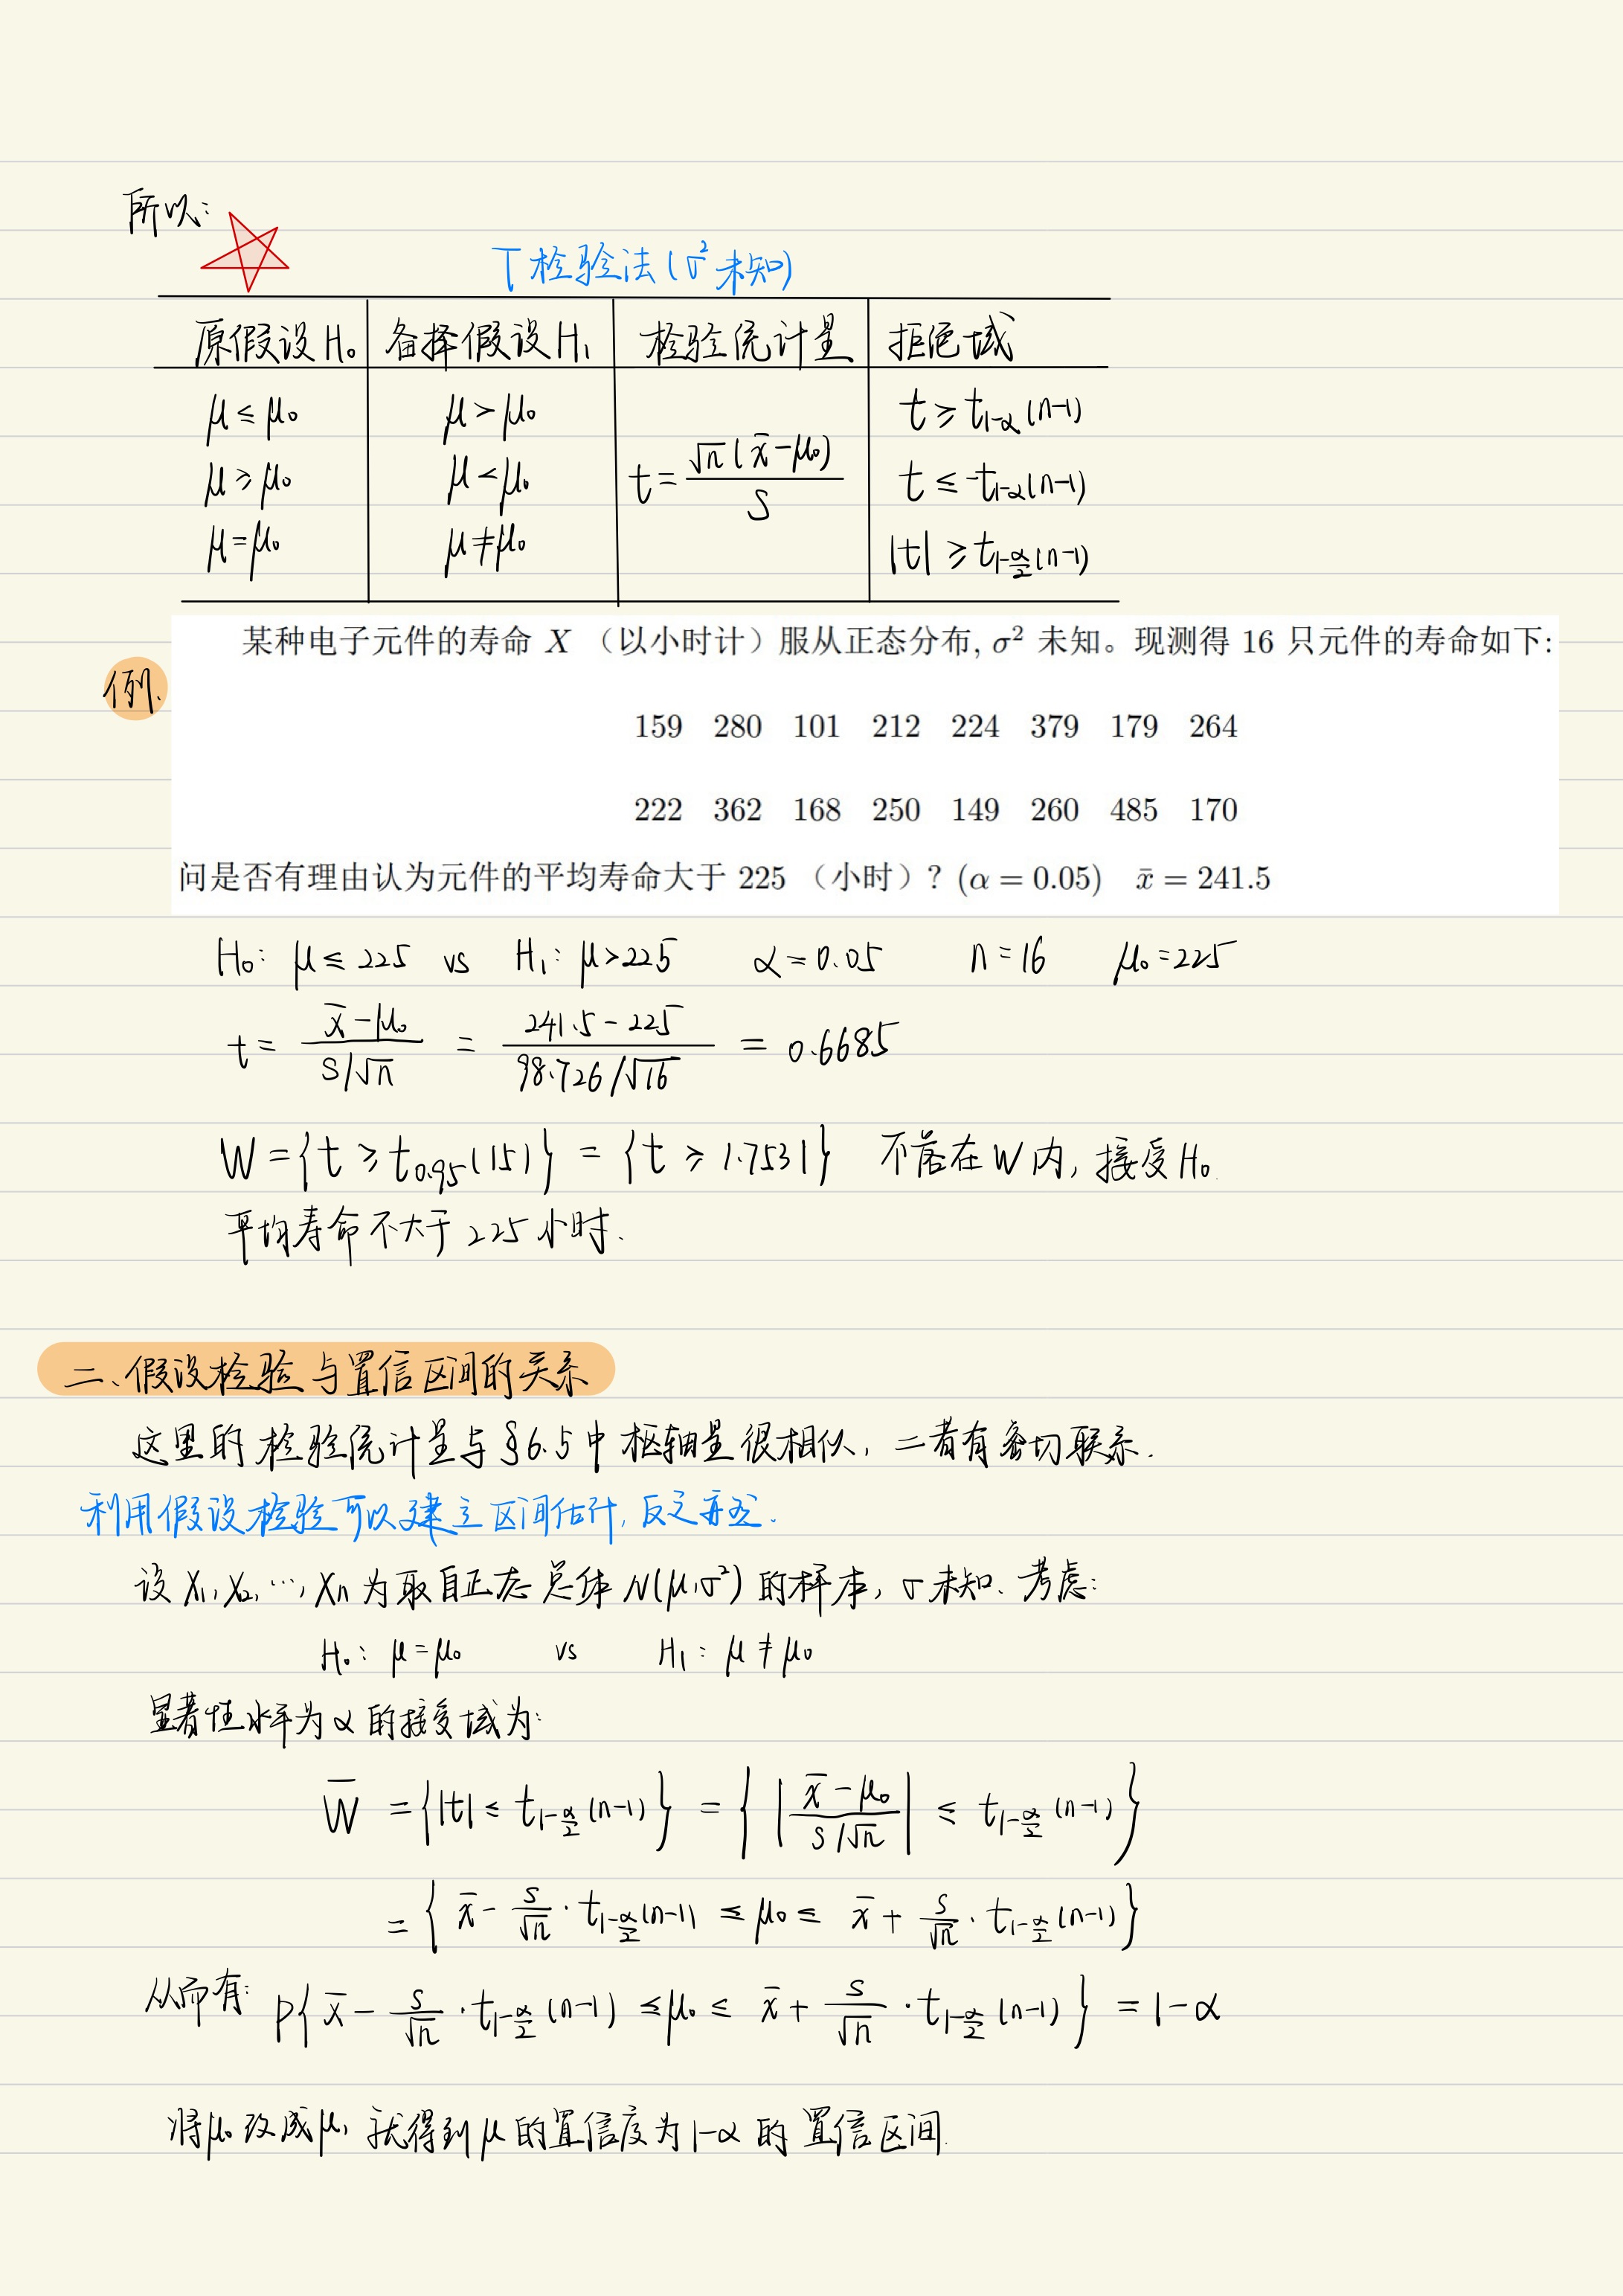 所以:
T检验法(σ²未知)
原假设H₀ 备择假设H₁ 检验统计量 拒绝域
μ≤μ₀ μ>μ₀ t≥t_{1-α}(n-1)
μ≥μ₀ μ<μ₀ t=√n(x̄-μ₀)/S t≤-t_{1-α}(n-1)
μ=μ₀ μ≠μ₀ |t|≥t_{1-α/2}(n-1)
例. 某种电子元件的寿命 X （以小时计）服从正态分布, σ² 未知。现测得 16 只元件的寿命如下:
159 280 101 212 224 379 179 264
222 362 168 250 149 260 485 170
问是否有理由认为元件的平均寿命大于 225 （小时）? (α = 0.05) x̄ = 241.5
H₀: μ≤225 vs H₁: μ>225 α=0.05 n=16 μ₀=225
t = (x̄-μ₀)/(S/√n) = (241.5-225)/(98.726/√16) = 0.6685
W={t≥t_{0.95}(15)} = {t≥1.7531} 不落在W内, 接受H₀.
平均寿命不大于225小时.
二、假设检验与置信区间的关系
这里的检验统计量与§6.5中枢轴量很相似, 二者有密切联系.
利用假设检验可以建立区间估计, 反之亦然.
设X₁,X₂,…,Xn为取自正态总体N(μ,σ²)的样本, σ未知. 考虑:
H₀: μ=μ₀ vs H₁: μ≠μ₀
显著性水平为α的接受域为:
W̄ ={|t|≤t_{1-α/2}(n-1)} = {|(x̄-μ₀)/(S/√n)| ≤ t_{1-α/2}(n-1)}
= {x̄ - S/√n · t_{1-α/2}(n-1) ≤ μ₀ ≤ x̄ + S/√n · t_{1-α/2}(n-1)}
从而有: P{x̄ - S/√n · t_{1-α/2}(n-1) ≤ μ₀ ≤ x̄ + S/√n · t_{1-α/2}(n-1)} = 1-α
将μ₀改成μ, 就得到μ的置信度为1-α的置信区间.